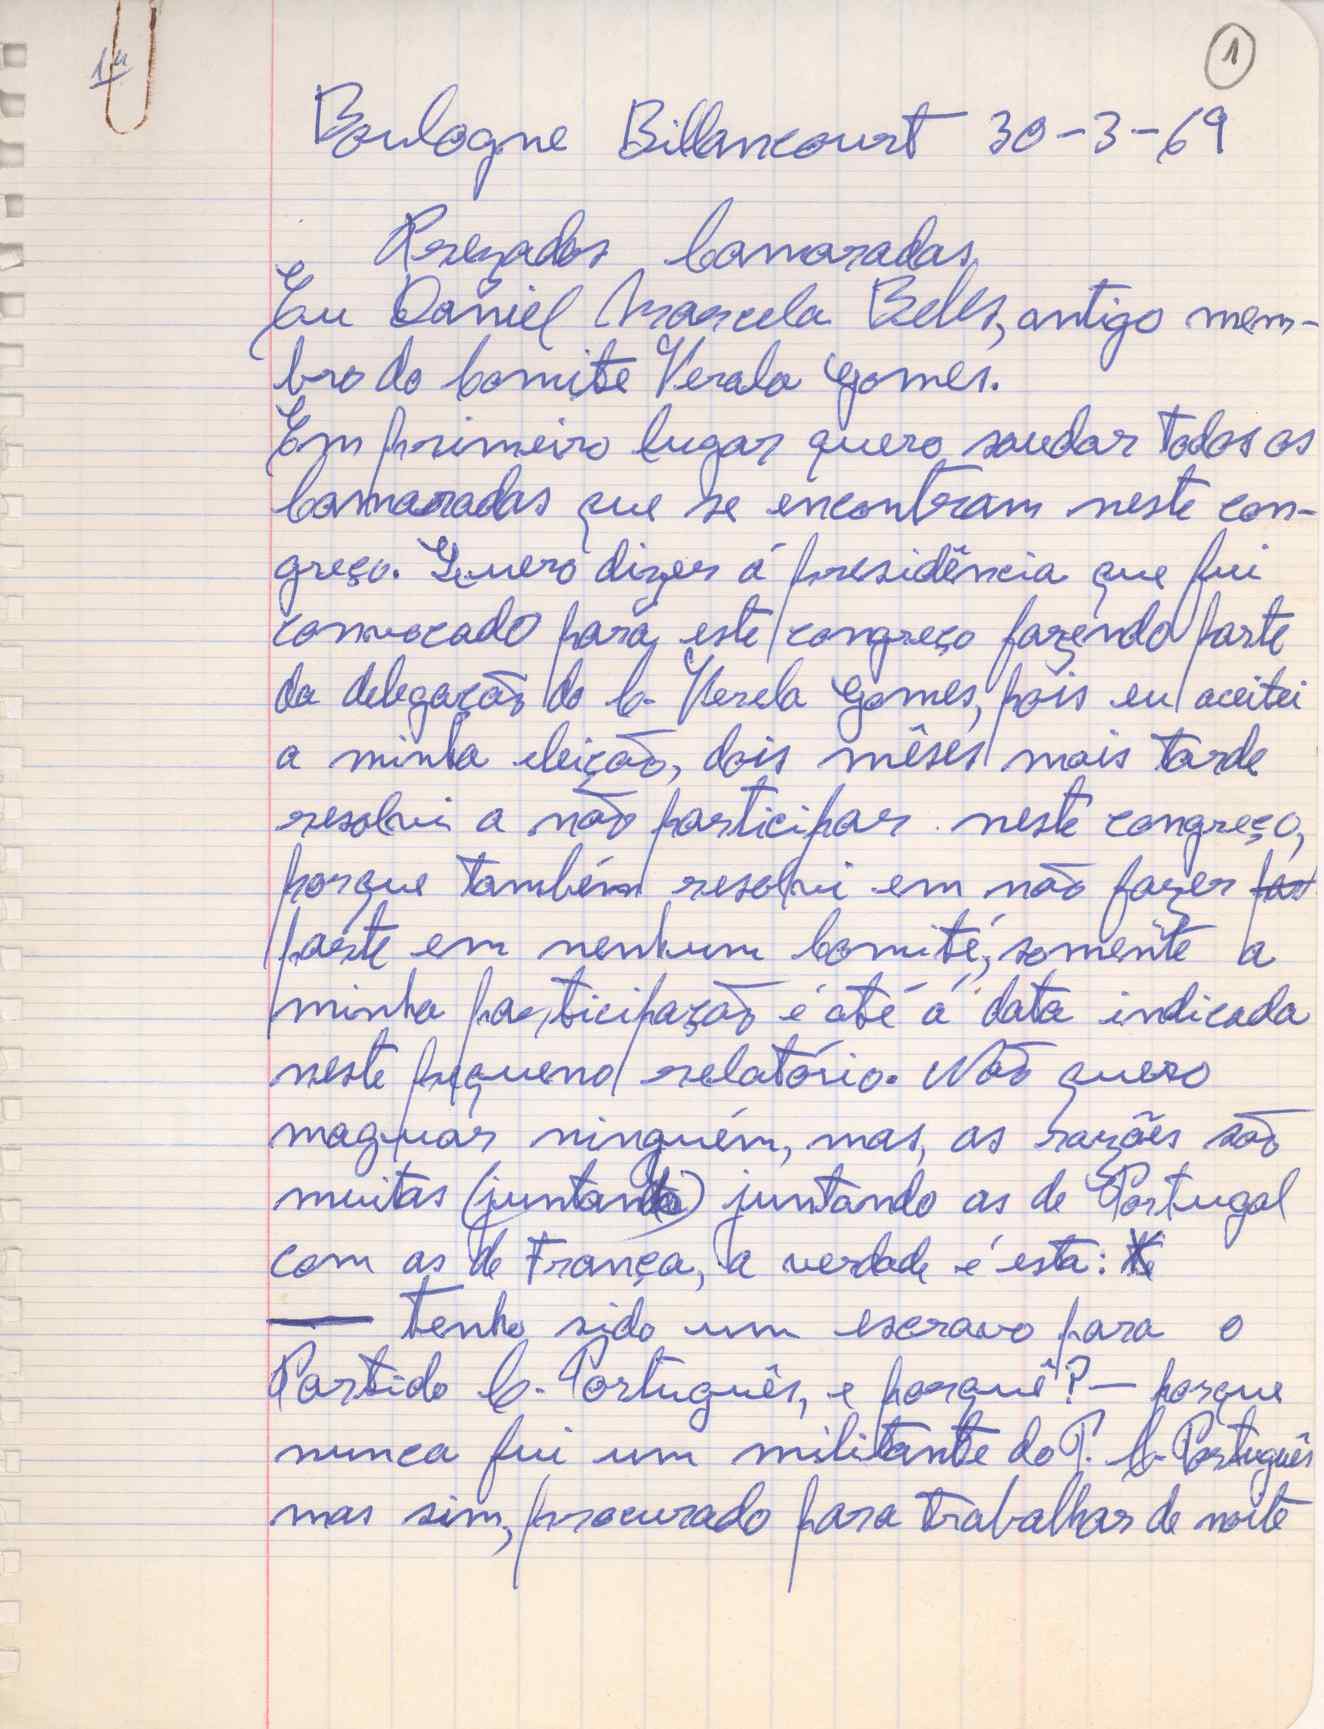 1
Boulogne Billancourt 30-3-69
Prezados Camaradas,
Eu Daniel Marcela antigo mem-
bro do Comite Verala Gomes.
Em primeiro lugar quero saudar todos os
Camaradas que se encontram neste con-
greço. Quero dizer á presidência que fui
convocado para este congreço fazendo parte
da delegação do C. Verela Gomes, pois eu aceitei
a minha eleição, dois mêses mais tarde
resolvi a não participar neste congreço,
porque também resolvi em não fazer
parte em nenhum Comité, somente a
minha participação é até á data indicada
neste pequeno relatório. Não quero
maguar ninguém, mas, as razões são
muitas (juntando) juntando as de Portugal
com as de França, a verdade é esta:
— tenho sido um escravo para o
Partido C. Português, e porquê? — porque
nunca fui um militante do P. C. Português
mas sim, procurado para trabalhar de noite